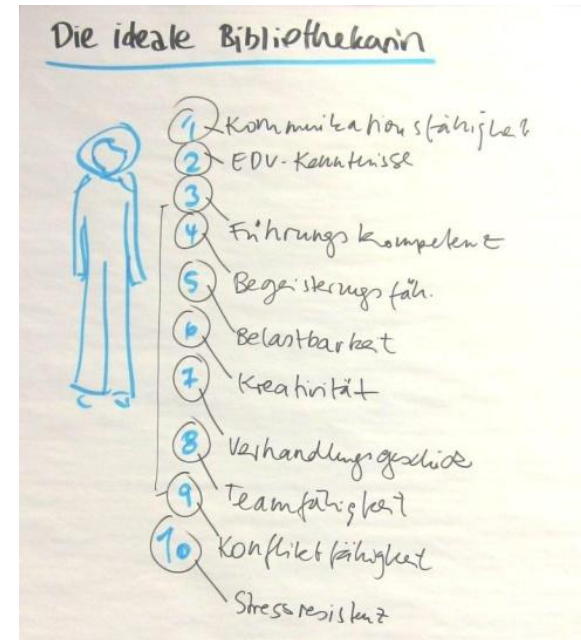 Die ideale Bibliothekarin
1 Kommunikationsfähigkeit
2 EDV-Kenntnisse
3 Führungskompetenz
4 Begeisterungsfäh.
5 Belastbarkeit
6 Kreativität
7 Verhandlungsgeschick
8 Teamfähigkeit
9 Konfliktfähigkeit
10 Stressresistenz